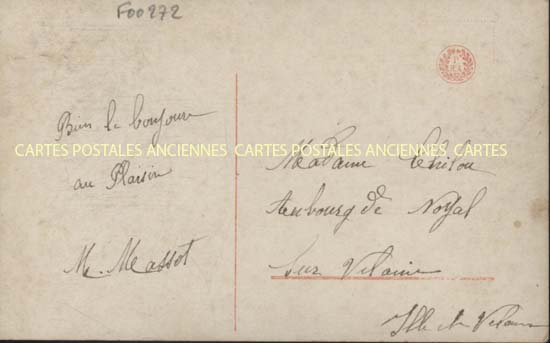 F00272
Bien le bonjour
CARTES POSTALES ANCIENNES CARTES POSTALES ANCIENNES CARTES
au Plaisir
M. Massot
Madame
au bourg de Noyal
sur Vilaine
Ille et Vilaine